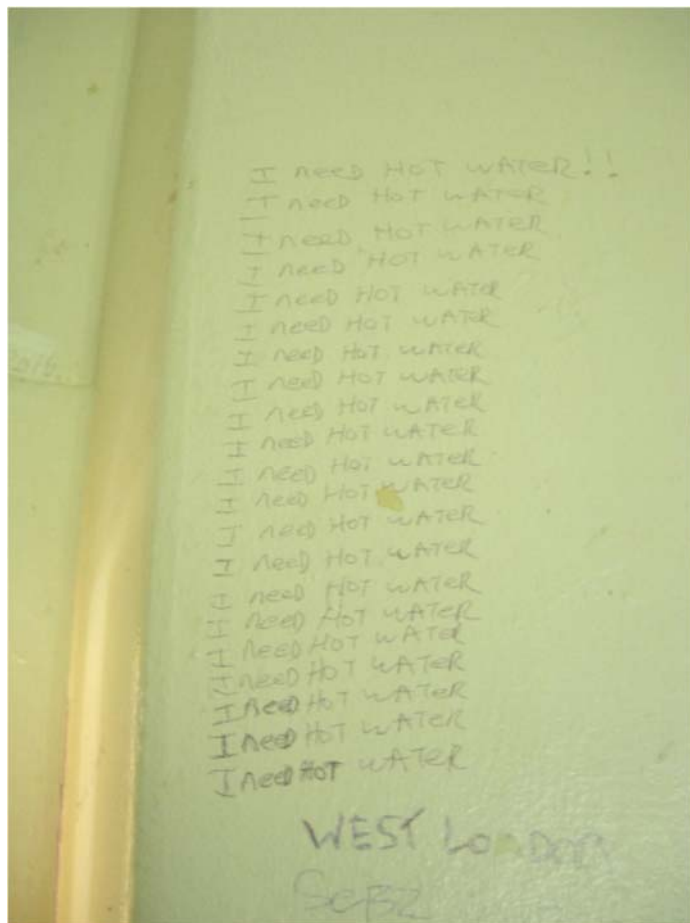 I need HOT WATER!!
I need HOT WATER
I need HOT WATER
I need HOT WATER
I need HOT WATER
I need HOT WATER
I need HOT WATER
I need HOT WATER
I need HOT WATER
I need HOT WATER
I need HOT WATER
I need HOT WATER
I need HOT WATER
I need HOT WATER
I need HOT WATER
I need HOT WATER
I need HOT WATER
I need HOT WATER
I need HOT WATER
I need HOT WATER
I need HOT WATER
WEST LONDON